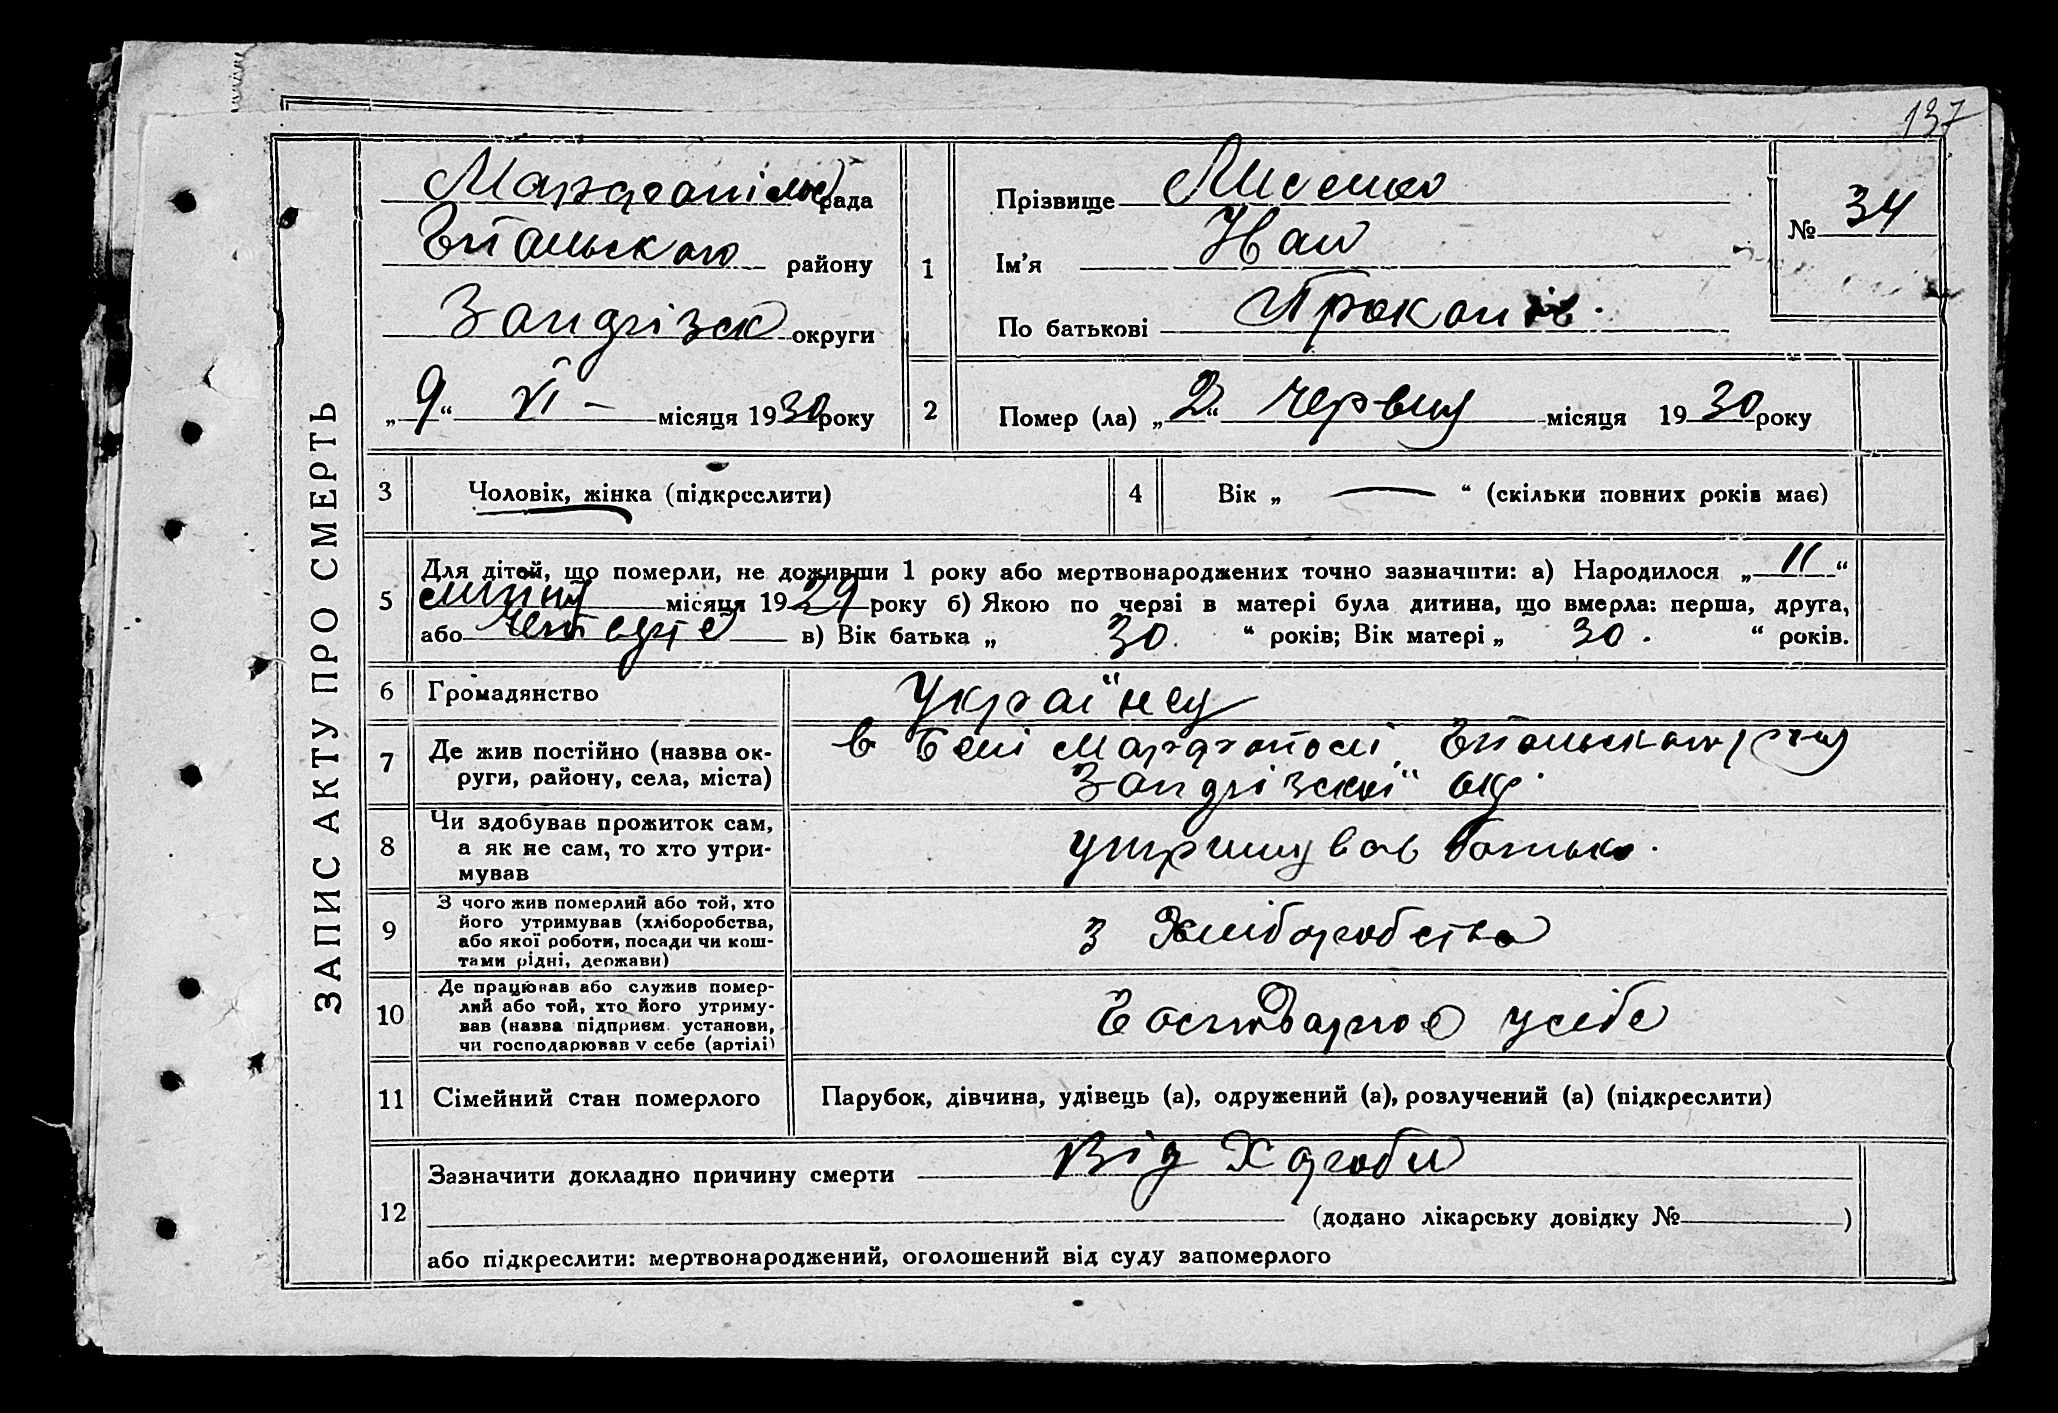 137
ЗАПИС АКТУ ПРО СМЕРТЬ
рада
району
округи
„9“ VI – місяця 1930 року
1
Прізвище Лисенко
Ім'я Иван
По батькові Прокопів.
№ 34
2
Помер (ла) „2“ червня місяця 1930 року
3
Чоловік, жінка (підкреслити)
4
Вік „ — “ (скільки повних років має)
5
Для дітей, що померли, не доживши 1 року або мертвонароджених точно зазначити: а) Народилося „11“
липня місяця 1929 року б) Якою по черзі в матері була дитина, що вмерла: перша, друга,
або в) Вік батька „ 30. “ років; Вік матері „ 30. “ років.
6
Громадянство
Українец
7
Де жив постійно (назва ок-
руги, району, села, міста)
в
окр.
8
Чи здобував прожиток сам,
а як не сам, то хто утри-
мував
утримував батько.
9
З чого жив померлий або той, хто
його утримував (хліборобства,
або якої роботи, посади чи кош-
тами рідні, держави)
з Хліборобства
10
Де працював або служив помер-
лий або той, хто його утриму-
вав (назва підприєм. установи,
чи господарював у себе (артілі)
усебе
11
Сімейний стан померлого
Парубок, дівчина, удівець (а), одружений (а), розлучений (а) (підкреслити)
12
Зазначити докладно причину смерти Від Хороби
(додано лікарську довідку № )
або підкреслити: мертвонароджений, оголошений від суду запомерлого